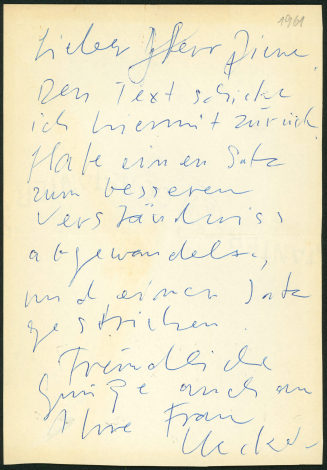 1961
Lieber Herr Piene
Den Text schicke
ich hiermit zurück.
Habe einen Satz
zum besseren
Verständniss
abgewandelt,
und einen Satz
gestrichen.
Freundliche
Grüße auch an
Ihre Frau
Uecker